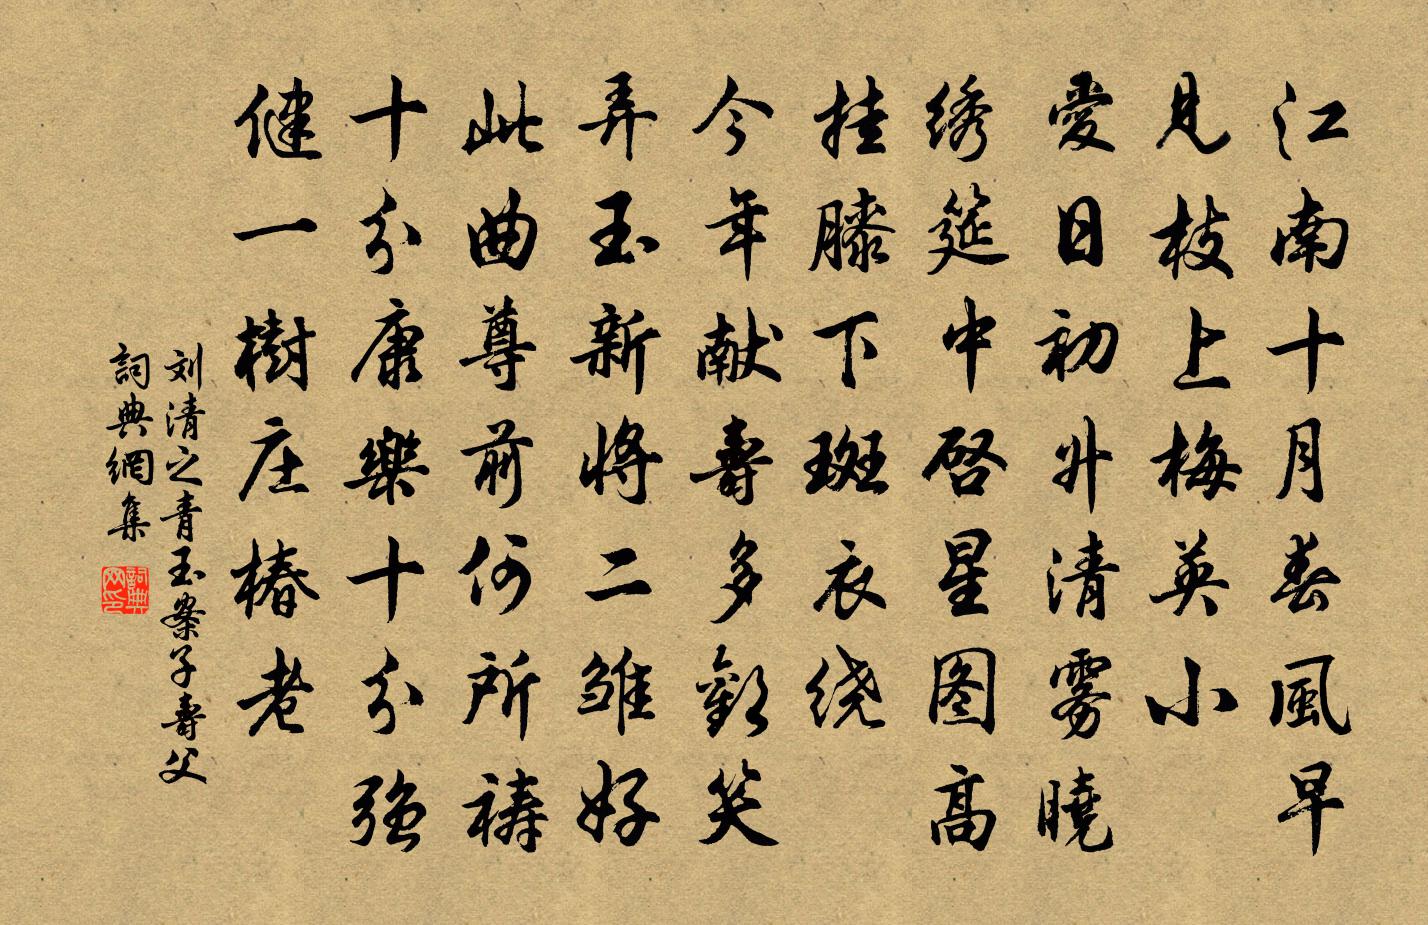 江南十月春風早
見枝上梅英小
愛日初升清雾曉
绣筵中啓星图高
挂膝下斑衣绕
今年献壽多歡笑
弄玉新将二雏好
此曲尊前何所祷
十分康樂十分强
健一樹庄椿老
刘清之青玉案子壽父
詞典網集
詞典网印